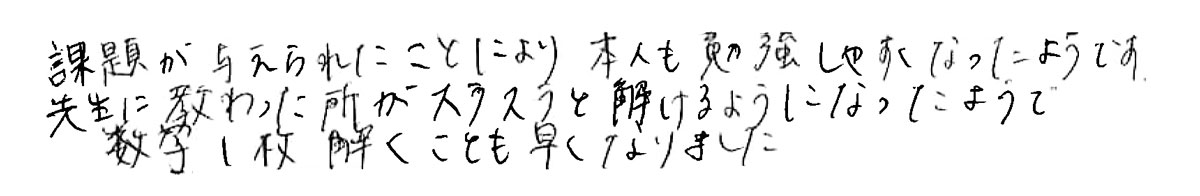 課題が与えられたことにより本人も勉強しやすくなったようです
先生に教わった所がスラスラと解けるようになったようで
数学1枚解くことも早くなりました